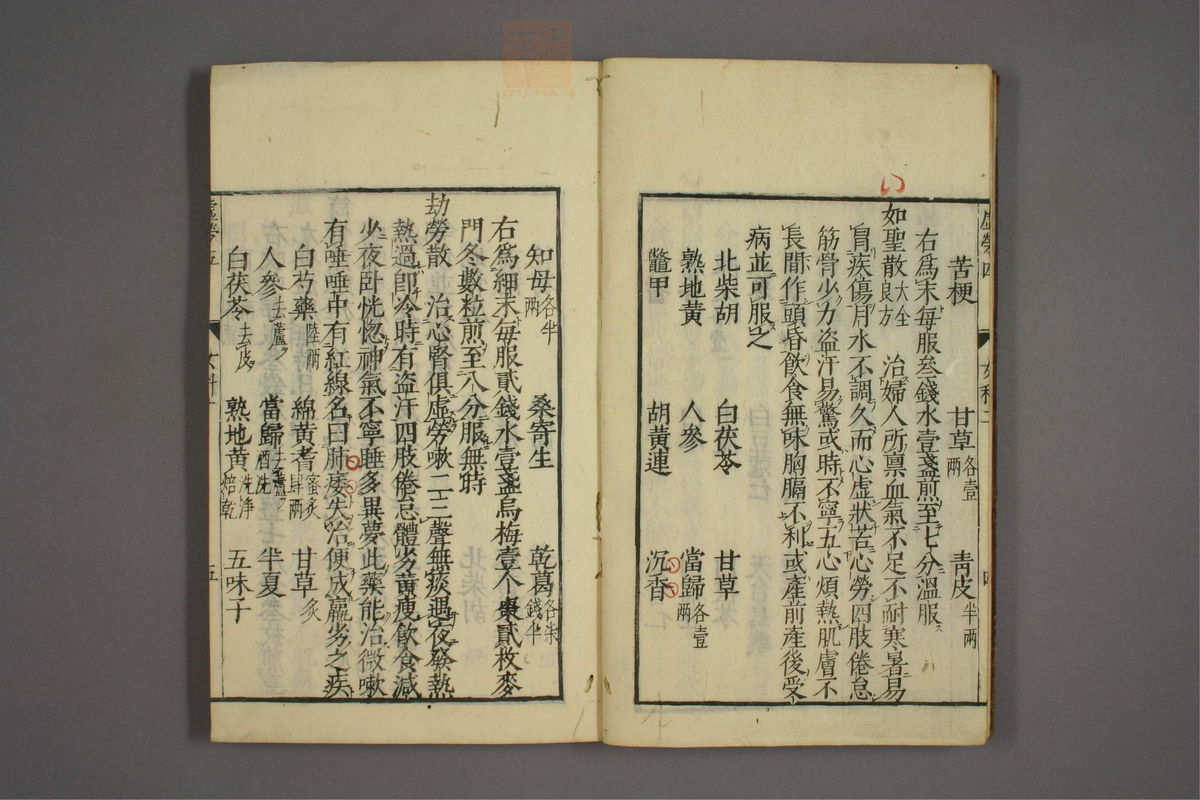 苦梗　甘草各壹兩　青皮半兩
右爲末毎服叁錢水壹盞煎至七分溫服
如聖散大全良方　治婦人所禀血氣不足不耐寒暑易
冐疾傷月水不調久而心虛狀苦心勞四肢倦怠
筋骨少力盗汗易驚或時不寧五心煩熱肌膚不
長間作頭昏飲食無味胸膈不利或產前產後受
病並可服之
北柴胡　白茯苓　甘草
熟地黄　人參　當歸各壹兩
鼈甲　胡黄連　沉香
知母各半兩　桑寄生　乾葛各柒錢半
右爲細末毎服貳錢水壹盞烏梅壹个棗貳枚麥
門冬數粒煎至八分服無時
劫勞散　治心腎俱虛勞嗽二三聲無痰遇夜發熱
熱過卽冷時有盗汗四肢倦怠體劣黄瘦飲食減
少夜卧恍惚神氣不寧睡多異夢此藥能治微嗽
有唾唾中有紅線名曰肺痿失治便成羸劣之疾
白芍藥陸兩　綿黄耆蜜炙肆兩　甘草炙
人參去蘆　當歸去蘆酒洗　半夏
白茯苓去皮　熟地黄洗净焙乾　五味子
虛勞四
四
五